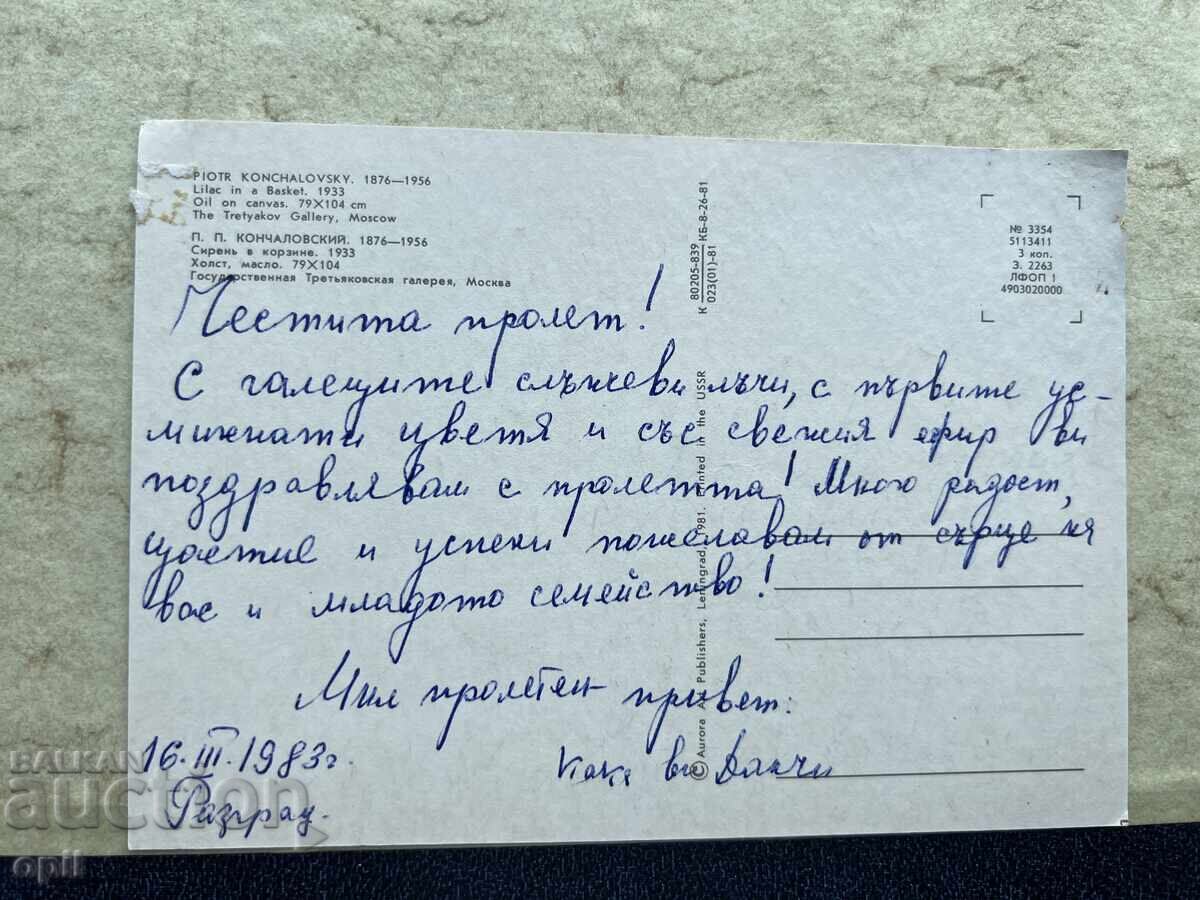 PIOTR KONCHALOVSKY. 1876—1956
Lilac in a Basket. 1933
Oil on canvas. 79×104 cm
The Tretyakov Gallery, Moscow
П. П. КОНЧАЛОВСКИЙ. 1876—1956
Сирень в корзине. 1933
Холст, масло. 79×104
Государственная Третьяковская галерея, Москва
К 80205-839 КБ-8-26-81
023(01)-81
№ 3354
5113411
3 коп.
З. 2263
ЛФОП 1
4903020000
Честита пролет!
С галещите слънчеви лъчи, с първите ус-
михнати цветя и със свежия ефир ви
поздравлявам с пролетта! Много радост,
щастие и успехи пожелавам от сърце на
вас и младото семейство!
Мил пролетен привет:
16.III.1983г.
Кака ви
Разград.
© Aurora Art Publishers, Leningrad, 1981. Printed in the USSR
BALKAN
auction
opil